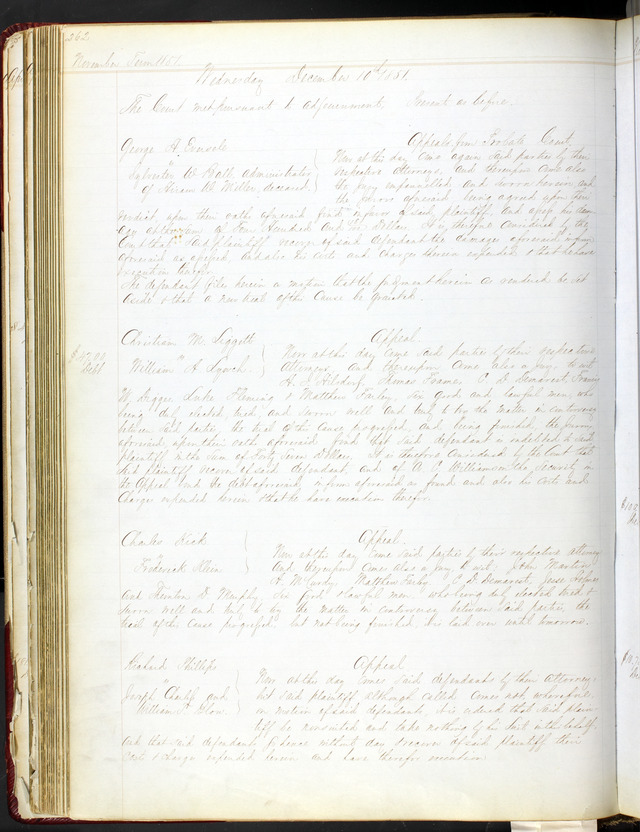 262
November Term 1851.
Wednesday December 10th 1851.
The Court met pursuant to adjournment. Present as before.
George A. Eversole
"
Sylvester W. Ball administrator
of Hiram W. Miller, deceased
Appeals from Probate Court,
Now at this day come again said parties by their
respective attorneys, and thereupon came also
the jury impannelled and sworn herein and
the jurors aforesaid being agreed upon their
verdict, upon their oaths aforesaid find in favor of said plaintiff, and assess his dam-
ages at the sum of Four Hundred and Dollars. It is therefore considered by the
Court that said plaintiff recover of said defendant the damages aforesaid in form
aforesaid as assessed, and also his costs and charges herein expended & that he have
execution therefor.
The defendant files herein a motion that the judgment herein as rendered be set
aside & that a new trial of this cause be granted.
$47.00
Debt
Christian M. Leggett
"
William A. Lynch
Appeal
Now at this day come said parties by their respective
attorneys, and thereupon came also a jury, to wit:
Thomas C. D. Demarest,
W. Luke Fleming & Matthew six good and lawful men, who
being duly elected, tried and sworn well and truly to try the matter in controversy
between said parties, the trial of this cause progressed, and being finished, the jurors
aforesaid, upon their oaths aforesaid find that said defendant is indebted to said
plaintiff in the sum of Forty Seven Dollars. It is therefore considered by the Court that
said plaintiff recover of said defendant, and of A. C. Williamson the security in
the Appeal bond the debt aforesaid, in form aforesaid as found and also his costs and
charges expended herein & that he have execution therefor.
Charles Keck
"
Frederick Klein
Appeal.
Now at this day come said parties by their respective attorneys
and thereupon comes also a jury to wit: John Martin
A. McCurdy, Matthew C. D. Demarest, Jesse Holmes
and D. Murphy, six good & lawful men who being duly elected tried &
sworn well and truly to try the matter in controversy between said parties, the
trial of the cause progressed, but not being finished, is laid over until tomorrow.
Richard Phillips
"
Joseph Charless and
William T. Blow.
Appeal
Now at this day come said defendants by their attorney,
but said plaintiff although called comes not, wherefore
on motion of said defendants, it is ordered that said plain-
tiff be nonsuited and take nothing by his suit in this behalf
and that said defendants go hence without day & recover of said plaintiff their
costs & charges expended herein and have therefor execution